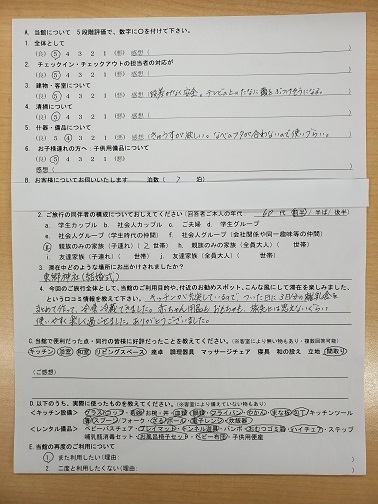 A. 当館について 5段階評価で、数字に○を付けて下さい。
1. 全体として
(良) 5 4 3 2 1 (悪) 感想 ( )
2. チェックイン・チェックアウトの担当者の対応が
(良) 5 4 3 2 1 (悪) 感想 ( )
3. 建物・客室について
(良) 5 4 3 2 1 (悪) 感想 (
4. 清掃について
(良) 5 4 3 2 1 (悪) 感想 ( )
5. 什器・備品について
(良) 5 4 3 2 1 (悪) 感想 (きゅうすが欲しい。なべのフタが合わないので使いづらい。)
6. お子様連れの方へ:子供用備品について
(良) 5 4 3 2 1 (悪)
感想 ( )
B. お客様についてお伺いいたします 泊数 ( 泊)
2. ご旅行の同伴者の構成についておしえてください (回答者ご本人の年代 60 代 前半/半ば/後半)
a. 学生カップル b. 社会人カップル c. ご夫婦 d. 学生グループ
e. 社会人グループ (学生時代の仲間) f. 社会人グループ (会社関係や同一趣味等の仲間)
g. 親族のみの家族 (子連れ) ( 2 世帯) h. 親族のみの家族 (全員大人) ( 世帯)
i. 友達家族 (子連れ) ( 世帯) j. 友達家族 (全員大人) ( 世帯)
3. 滞在中どのような場所にお出かけされましたか?
神社 (結婚式)
4. 今回のご旅行全体として、当館のご利用目的や、付近のお勧めスポット、こんな風にして滞在を楽しみました、
という口コミ情報を教えて下さい。 キッチンが充実しているので、ついた日に3日分の離乳食を
まとめて作って、冷凍
使いやすく楽しく過ごせました。ありがとうございました。
C. 当館で便利だった点・同行の皆様に好評だったことを教えてください。(※客室により無い物もあり・複数回答可能)
キッチン 浴室 和室 リビングスペース 座卓 調理器具 マッサージチェア 寝具 和の設え 立地 間取り
(ご感想)
D. 以下のうち、実際に使ったものを教えてください。(※客室により備えていない物もあり)
<キッチン設備> グラス・コップ・
箸・スプーン/フォーク・ざる/ボール・電子レンジ・炊飯器
<レンタル備品> ベビーバスチェア・プレイマット・
哺乳瓶消毒セット・お風呂椅子セット・ベビー布団・子供用便座
E. 当館の再度のご利用について
1 また利用したい (理由: )
2 二度と利用したくない (理由: )